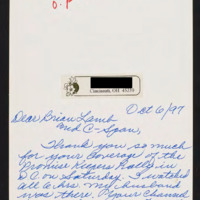 O.P
Cincinnati, OH 45238
Oct 6/97
Dear Brian Lamb
and C-Span,
Thank you so much
for your coverage of the
Promise Keepers Rally in
DC on Saturday. I watched
all 6 hrs. my husband
was there. Your Channel